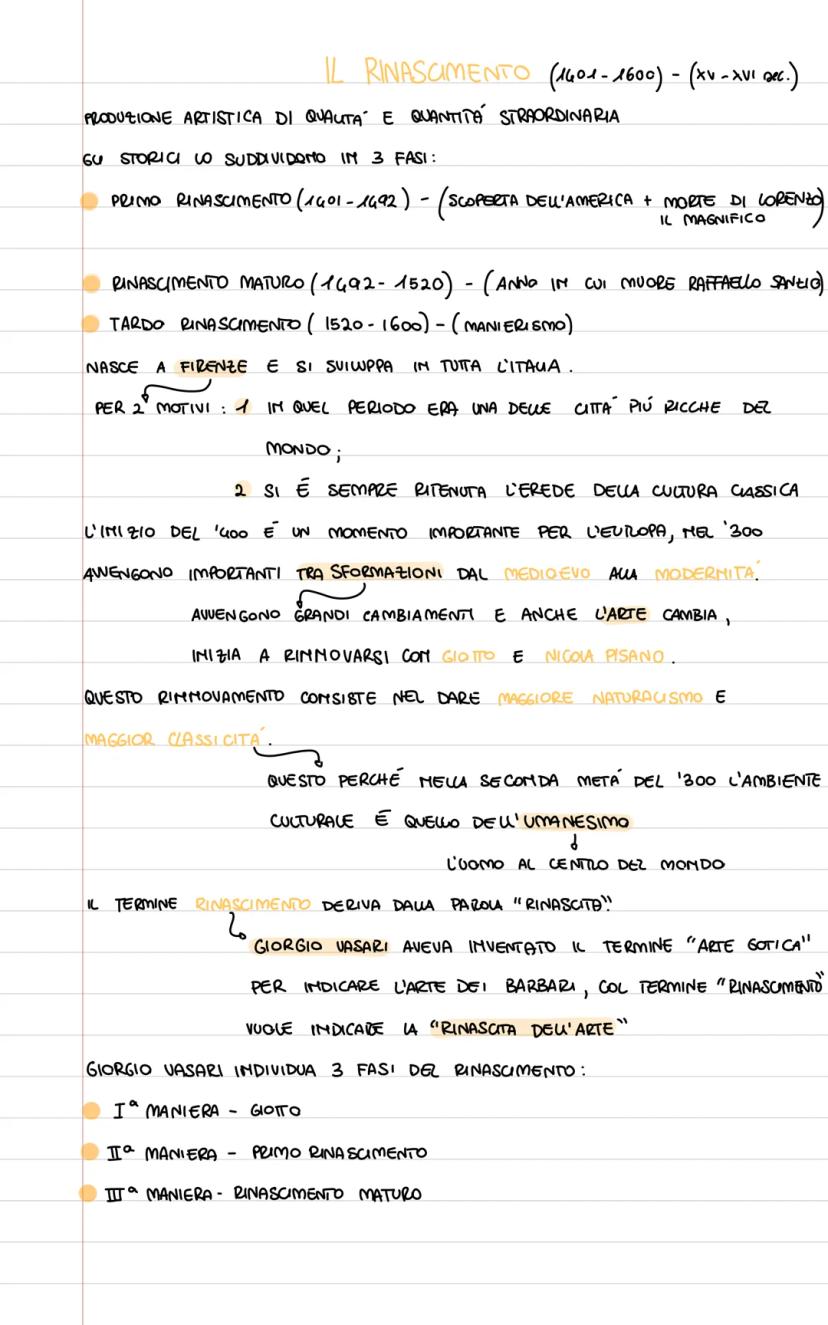 IL RINASCIMENTO (1401-1600) - (XV-XVI sec.)
PRODUZIONE ARTISTICA DI QUALITA' E QUANTITÁ STRAORDINARIA
GLI STORICI LO SUDDIVIDONO IN 3 FASI:
PRIMO RINASCIMENTO (1401-1492) - (SCOPERTA DELL'AMERICA + MORTE DI LORENZO)
IL MAGNIFICO
RINASCIMENTO MATURO (1492-1520) - (ANNO IN CUI MUORE RAFFAELLO SANZIO)
TARDO RINASCIMENTO (1520-1600) - (MANIERISMO)
NASCE A FIRENZE E SI SVILUPPA IN TUTTA L'ITALIA.
PER 2 MOTIVI: 1 IN QUEL PERIODO ERA UNA DELLE CITTA' PIÚ RICCHE DEL
MONDO;
2 SI É SEMPRE RITENUTA L'EREDE DELLA CULTURA CLASSICA
L'INIZIO DEL '400 É UN MOMENTO IMPORTANTE PER L'EUROPA, NEL '300
AVVENGONO IMPORTANTI TRASFORMAZIONI DAL MEDIOEVO ALLA MODERNITA'.
AVVENGONO GRANDI CAMBIAMENTI E ANCHE L'ARTE CAMBIA,
INIZIA A RINNOVARSI CON GIOTTO E NICOLA PISANO.
QUESTO RINNOVAMENTO CONSISTE NEL DARE MAGGIORE NATURALISMO E
MAGGIOR CLASSICITA'.
QUESTO PERCHÉ NELLA SECONDA METÁ DEL '300 L'AMBIENTE
CULTURALE É QUELLO DELL'UMANESIMO
L'UOMO AL CENTRO DEL MONDO
IL TERMINE RINASCIMENTO DERIVA DALLA PAROLA "RINASCITA".
GIORGIO VASARI AVEVA INVENTATO IL TERMINE "ARTE GOTICA"
PER INDICARE L'ARTE DEI BARBARI, COL TERMINE "RINASCIMENTO"
VUOLE INDICARE LA "RINASCITA DELL'ARTE"
GIORGIO VASARI INDIVIDUA 3 FASI DEL RINASCIMENTO:
Iª MANIERA - GIOTTO
IIª MANIERA - PRIMO RINASCIMENTO
IIIª MANIERA - RINASCIMENTO MATURO